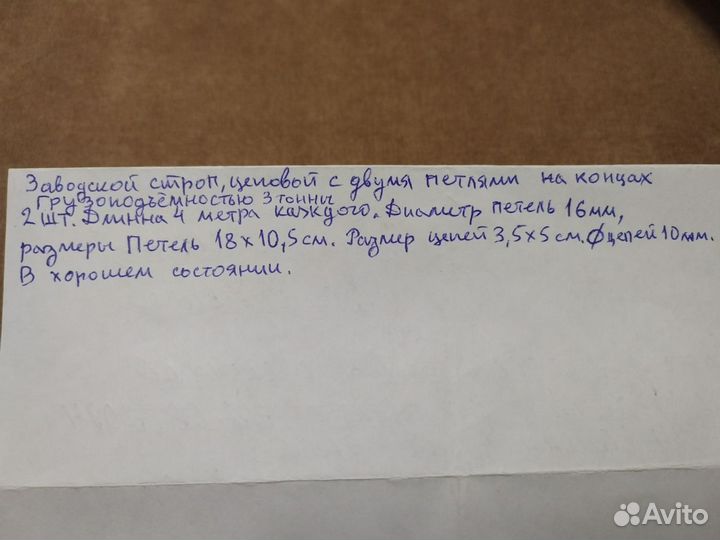 Заводской строп, цеповой с двумя петлями на концах
Грузоподъёмностью 3 тонны
2 шт. Длинна 4 метра каждого. Диаметр петель 16мм,
размеры Петель 18х10,5см. Размер цепей 3,5х5 см. Ø цепей 10мм.
В хорошем состоянии.
Avito